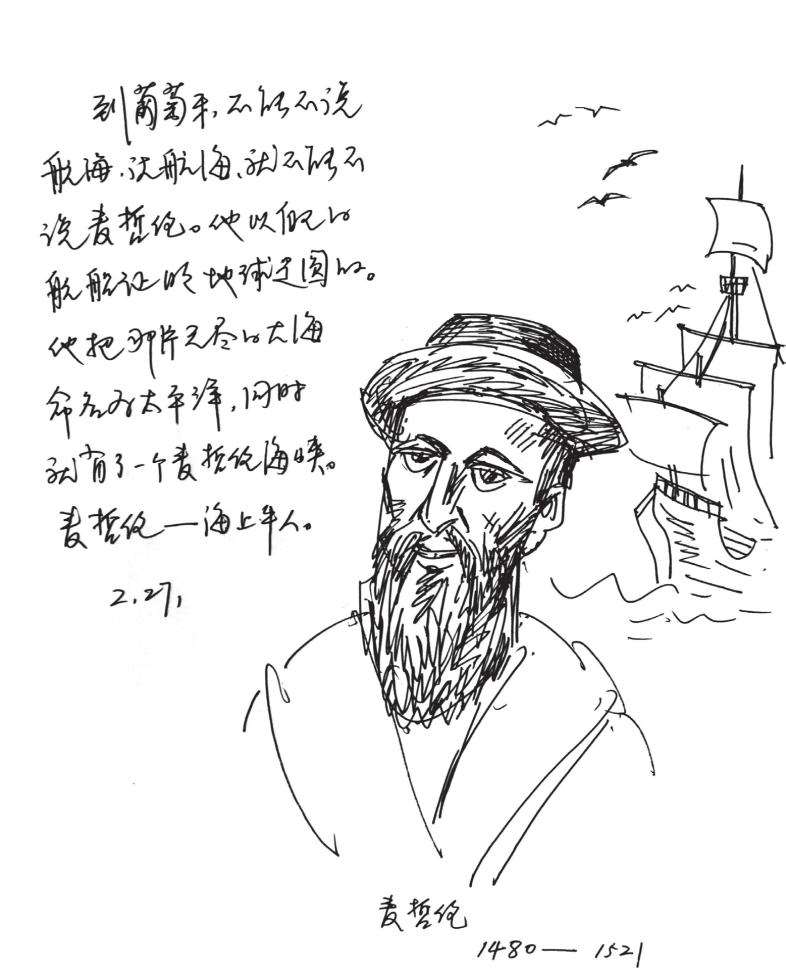 到葡萄牙,不能不说
航海,说航海,就不能不
说麦哲伦。他以自己的
航船证明地球是圆的。
他把那片无尽的大海
命名为太平洋,同时
就有了一个麦哲伦海峡。
麦哲伦—海上牛人。
2.27,
麦哲伦
1480—1521